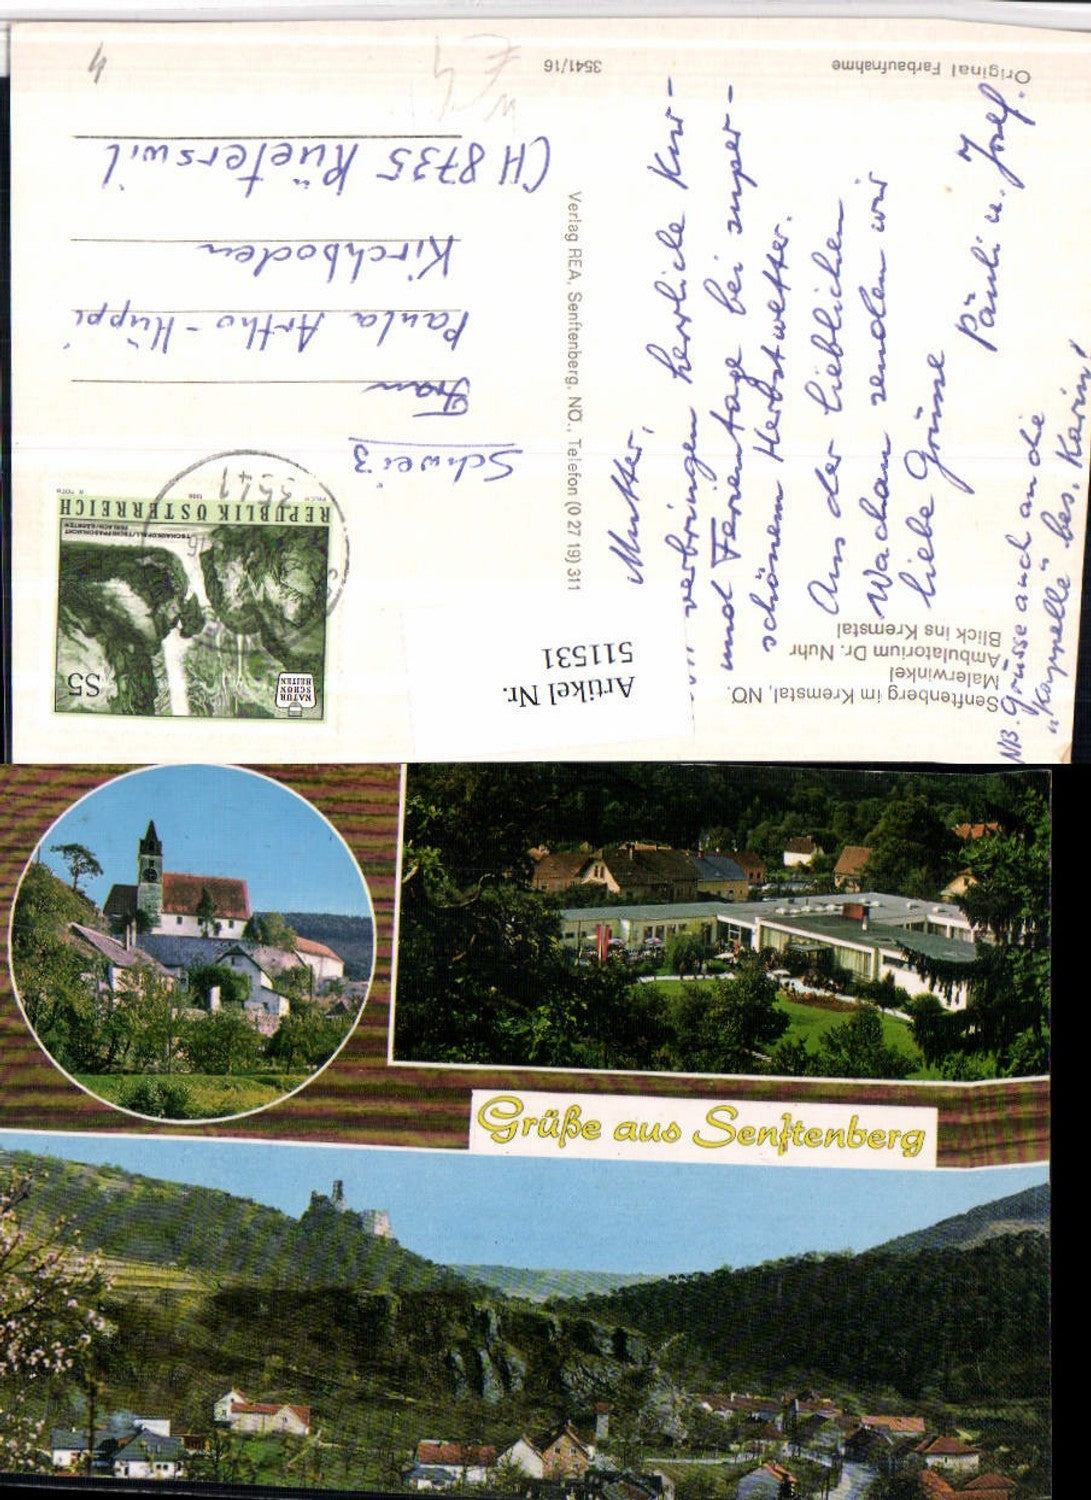 Original Farbaufnahme
3541/16
4
Mutter,
verbringen herrliche Kur-
und Ferientage bei super-
schönem Herbstwetter.
Aus der lieblichen
Wachau senden wir
liebe Grüsse
Päuli u. Josef.
NB. Grüsse auch an die
"Kappelle" bes. Karin!
Verlag REA, Senftenberg, NÖ., Telefon (0 27 19) 311
Schweiz
Frau
Paula Artho-Hüppi
Kirchboden
CH 8735 Rüeterswil
REPUBLIK ÖSTERREICH
TSCHAUKOFALL/TSCHEPPASCHLUCHT
FERLACH/KÄRNTEN
S5
NATUR
SCHÖN
HEITEN
3541
Artikel Nr.
511531
Senftenberg im Kremstal, NÖ.
Malerwinkel
Ambulatorium Dr. Nuhr
Blick ins Kremstal
Grüße aus Senftenberg